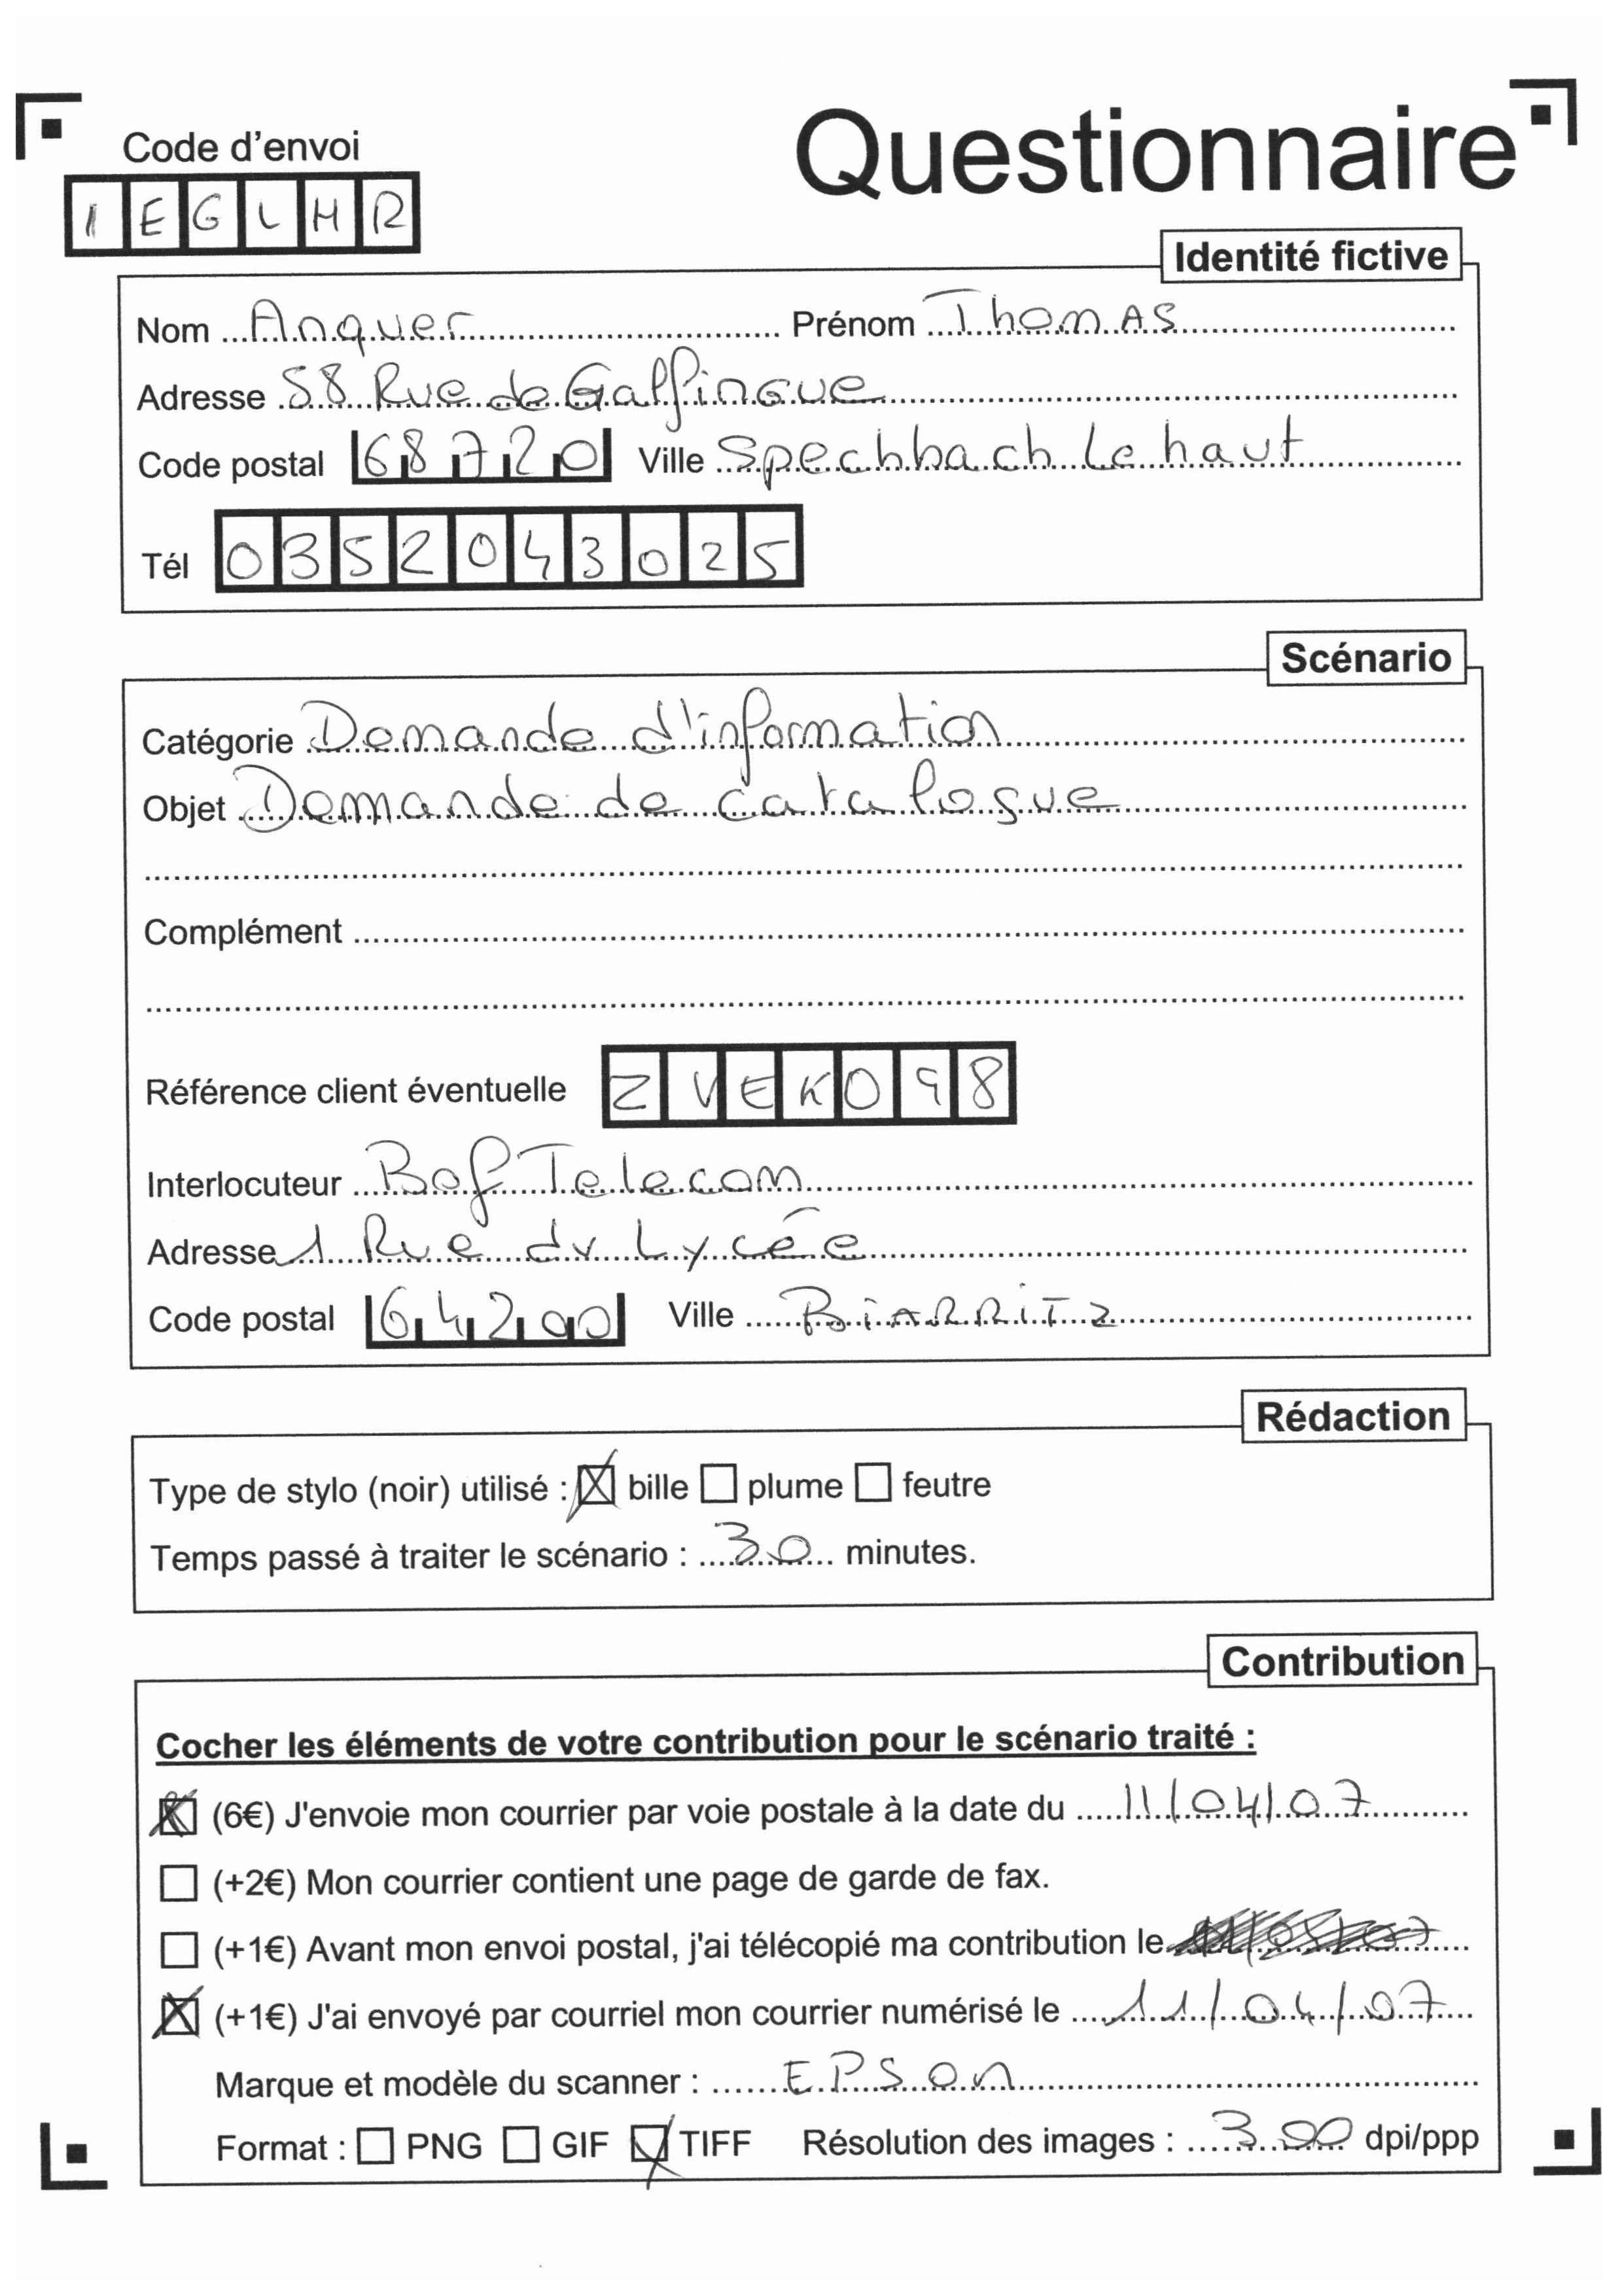 Questionnaire
Code d'envoi
IEGLHR
Identité fictive
Nom Anquer Prénom Thomas
Adresse 58 Rue de Galfingue
Code postal 68720 Ville Spechbach le haut
Tél 0352043025
Scénario
Catégorie Demande d'information
Objet Demande de catalogue
Complément
Référence client éventuelle ZVEKO98
Interlocuteur Bof Telecom
Adresse 1 Rue du Lycée
Code postal 64200 Ville BIARRITZ
Rédaction
Type de stylo (noir) utilisé : bille plume feutre
Temps passé à traiter le scénario : 30 minutes.
Contribution
Cocher les éléments de votre contribution pour le scénario traité :
(6€) J'envoie mon courrier par voie postale à la date du 11/04/07
(+2€) Mon courrier contient une page de garde de fax.
(+1€) Avant mon envoi postal, j'ai télécopié ma contribution le
(+1€) J'ai envoyé par courriel mon courrier numérisé le 11/04/07
Marque et modèle du scanner : EPSON
Format : PNG GIF TIFF Résolution des images : 300 dpi/ppp